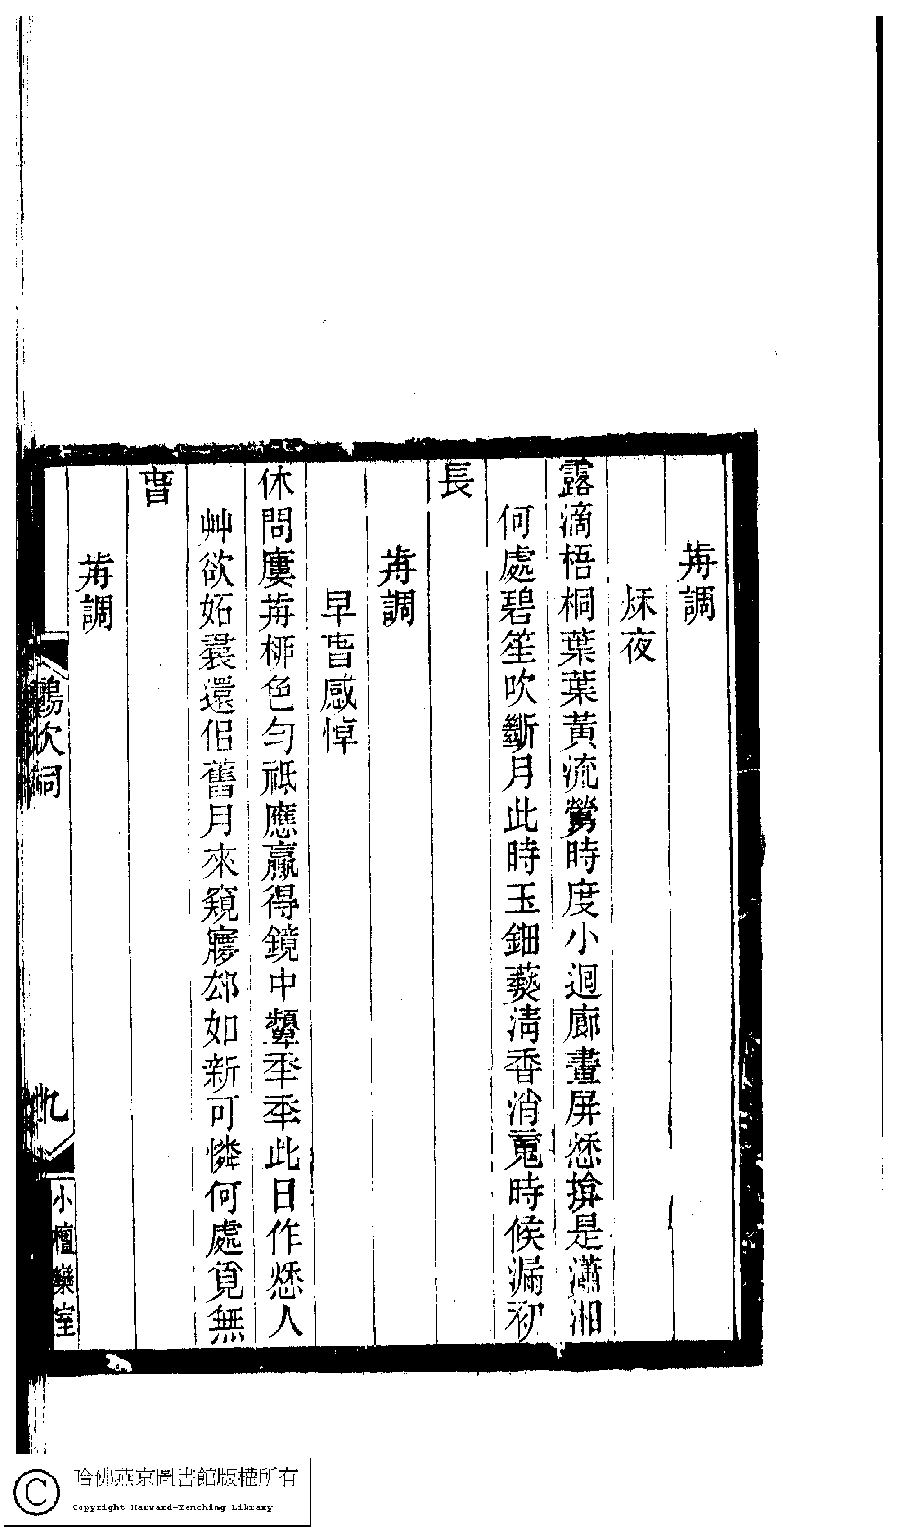 𦱤調
秌夜
露滴梧桐葉葉黃流鶯時度小迴廊畫屏愁揜是瀟湘
何處碧笙吹斷月此時玉鈿蕤清香消䰟時候漏初
長
𦱤調
早萅感悼
休問𡪢𦱤桺色勻祇應贏得鏡中顰秊秊此日作愁人
艸欲妬裠還佀舊月來窺㝱郤如新可憐何處覔無
萅
𦱤調
詞
九
小檀欒室
哈佛燕京圖書館版權所有
Copyright Harvard-Yenching Library